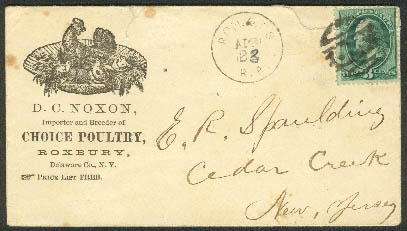 D. C. NOXON,
Importer and Breeder of
CHOICE POULTRY,
ROXBURY,
Delaware Co., N. Y.
☞ PRICE LIST FREE.
E. R. Spaulding
Cedar Creek
New Jersey